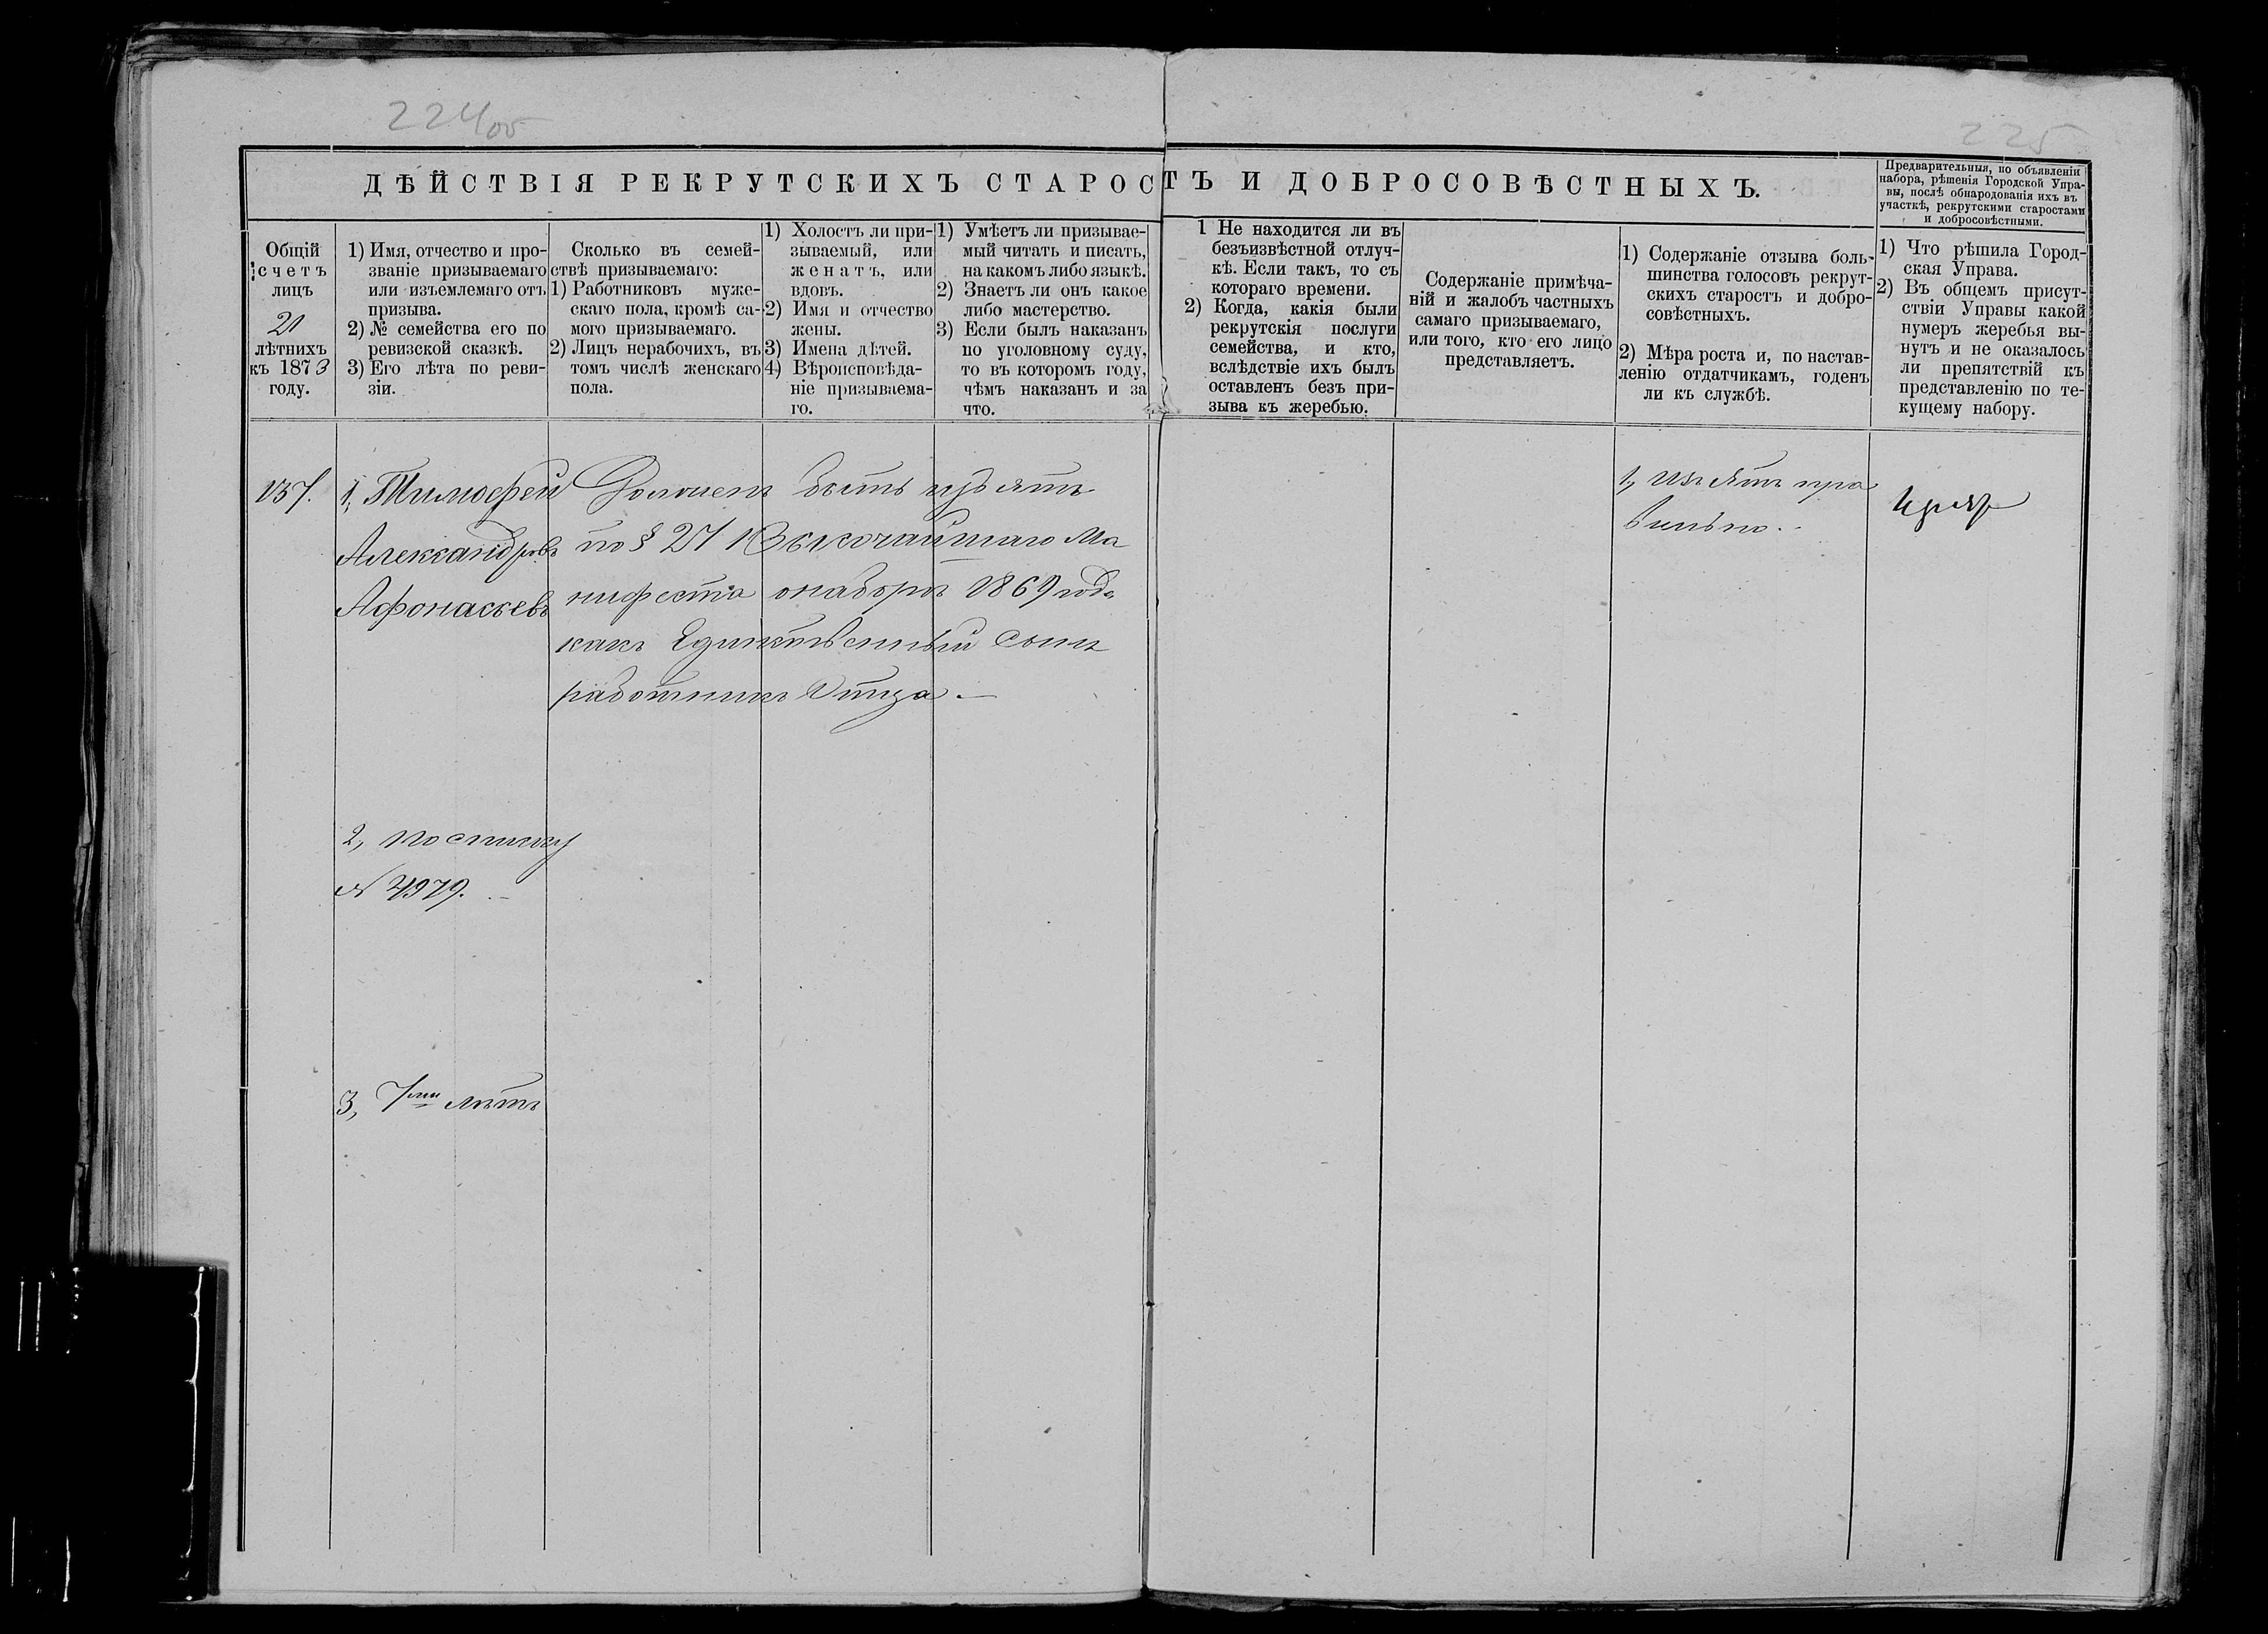 224об
225
ДѢЙСТВІЯ РЕКРУТСКИХЪ СТАРОСТЪ И ДОБРОСОВѢСТНЫХЪ.
Предварительныя, по объявленіи
набора, рѣшенія Городской Упра-
вы, послѣ обнародованія ихъ въ
участкѣ, рекрутскими старостами
и добросовѣстными.
Общій
счетъ
лицъ
21
лѣтнихъ
къ 1873
году.
1) Имя, отчество и про-
званіе призываемаго
или изъемлемаго отъ
призыва.
2) № семейства его по
ревизской сказкѣ.
3) Его лѣта по реви-
зіи.
Сколько въ семей-
ствѣ призываемаго:
1) Работниковъ муже-
скаго пола, кромѣ са-
мого призываемаго.
2) Лицъ нерабочихъ, въ
томъ числѣ женскаго
пола.
1) Холостъ ли при-
зываемый, или
женатъ, или
вдовъ.
2) Имя и отчество
жены.
3) Имена дѣтей.
4) Вѣроисповѣда-
ніе призываема-
го.
1) Умѣетъ ли призывае-
мый читать и писать,
на какомъ либо языкѣ.
2) Знаетъ ли онъ какое
либо мастерство.
3) Если былъ наказанъ
по уголовному суду,
то въ которомъ году,
чѣмъ наказанъ и за
что.
1 Не находится ли въ
безъизвѣстной отлуч-
кѣ. Если такъ, то съ
котораго времени.
2) Когда, какія были
рекрутскія послуги
семейства, и кто,
вслѣдствіе ихъ былъ
оставленъ безъ при-
зыва къ жеребью.
Содержаніе примѣча-
ній и жалобъ частныхъ
самаго призываемаго,
или того, кто его лицо
представляетъ.
1) Содержаніе отзыва боль-
шинства голосовъ рекрут-
скихъ старостъ и добро-
совѣстныхъ.
2) Мѣра роста и, по настав-
ленію отдатчикамъ, годенъ
ли къ службѣ.
1) Что рѣшила Город-
ская Управа.
2) Въ общемъ присут-
ствіи Управы какой
нумеръ жеребья вы-
нутъ и не оказалось
ли препятствій къ
представленію по те-
кущему набору.
137.
1, Тимофей
Александровъ
Афонасьевъ
Долженъ быть изъятъ
по § 27 Высочайшаго Ма
нифеста о наборѣ 1869 года
какъ Единственный Сынъ
работникъ Отца. —
1, Изъятъ пра
вильно. -
2, по списку
№ 4979. -
3, 7ми лѣтъ